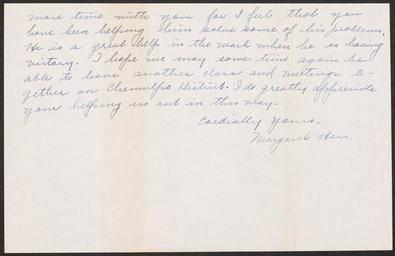 more time with you for I feel that you
have been helping him solve some of his problems.
He is a great help in the work when he is having
victory. I hope we may some time again be
able to have another class and meetings to-
gether on Chemulpo District. I do greatly appreciate
your helping us out in this way.
Cordially yours,
Margaret Hess.